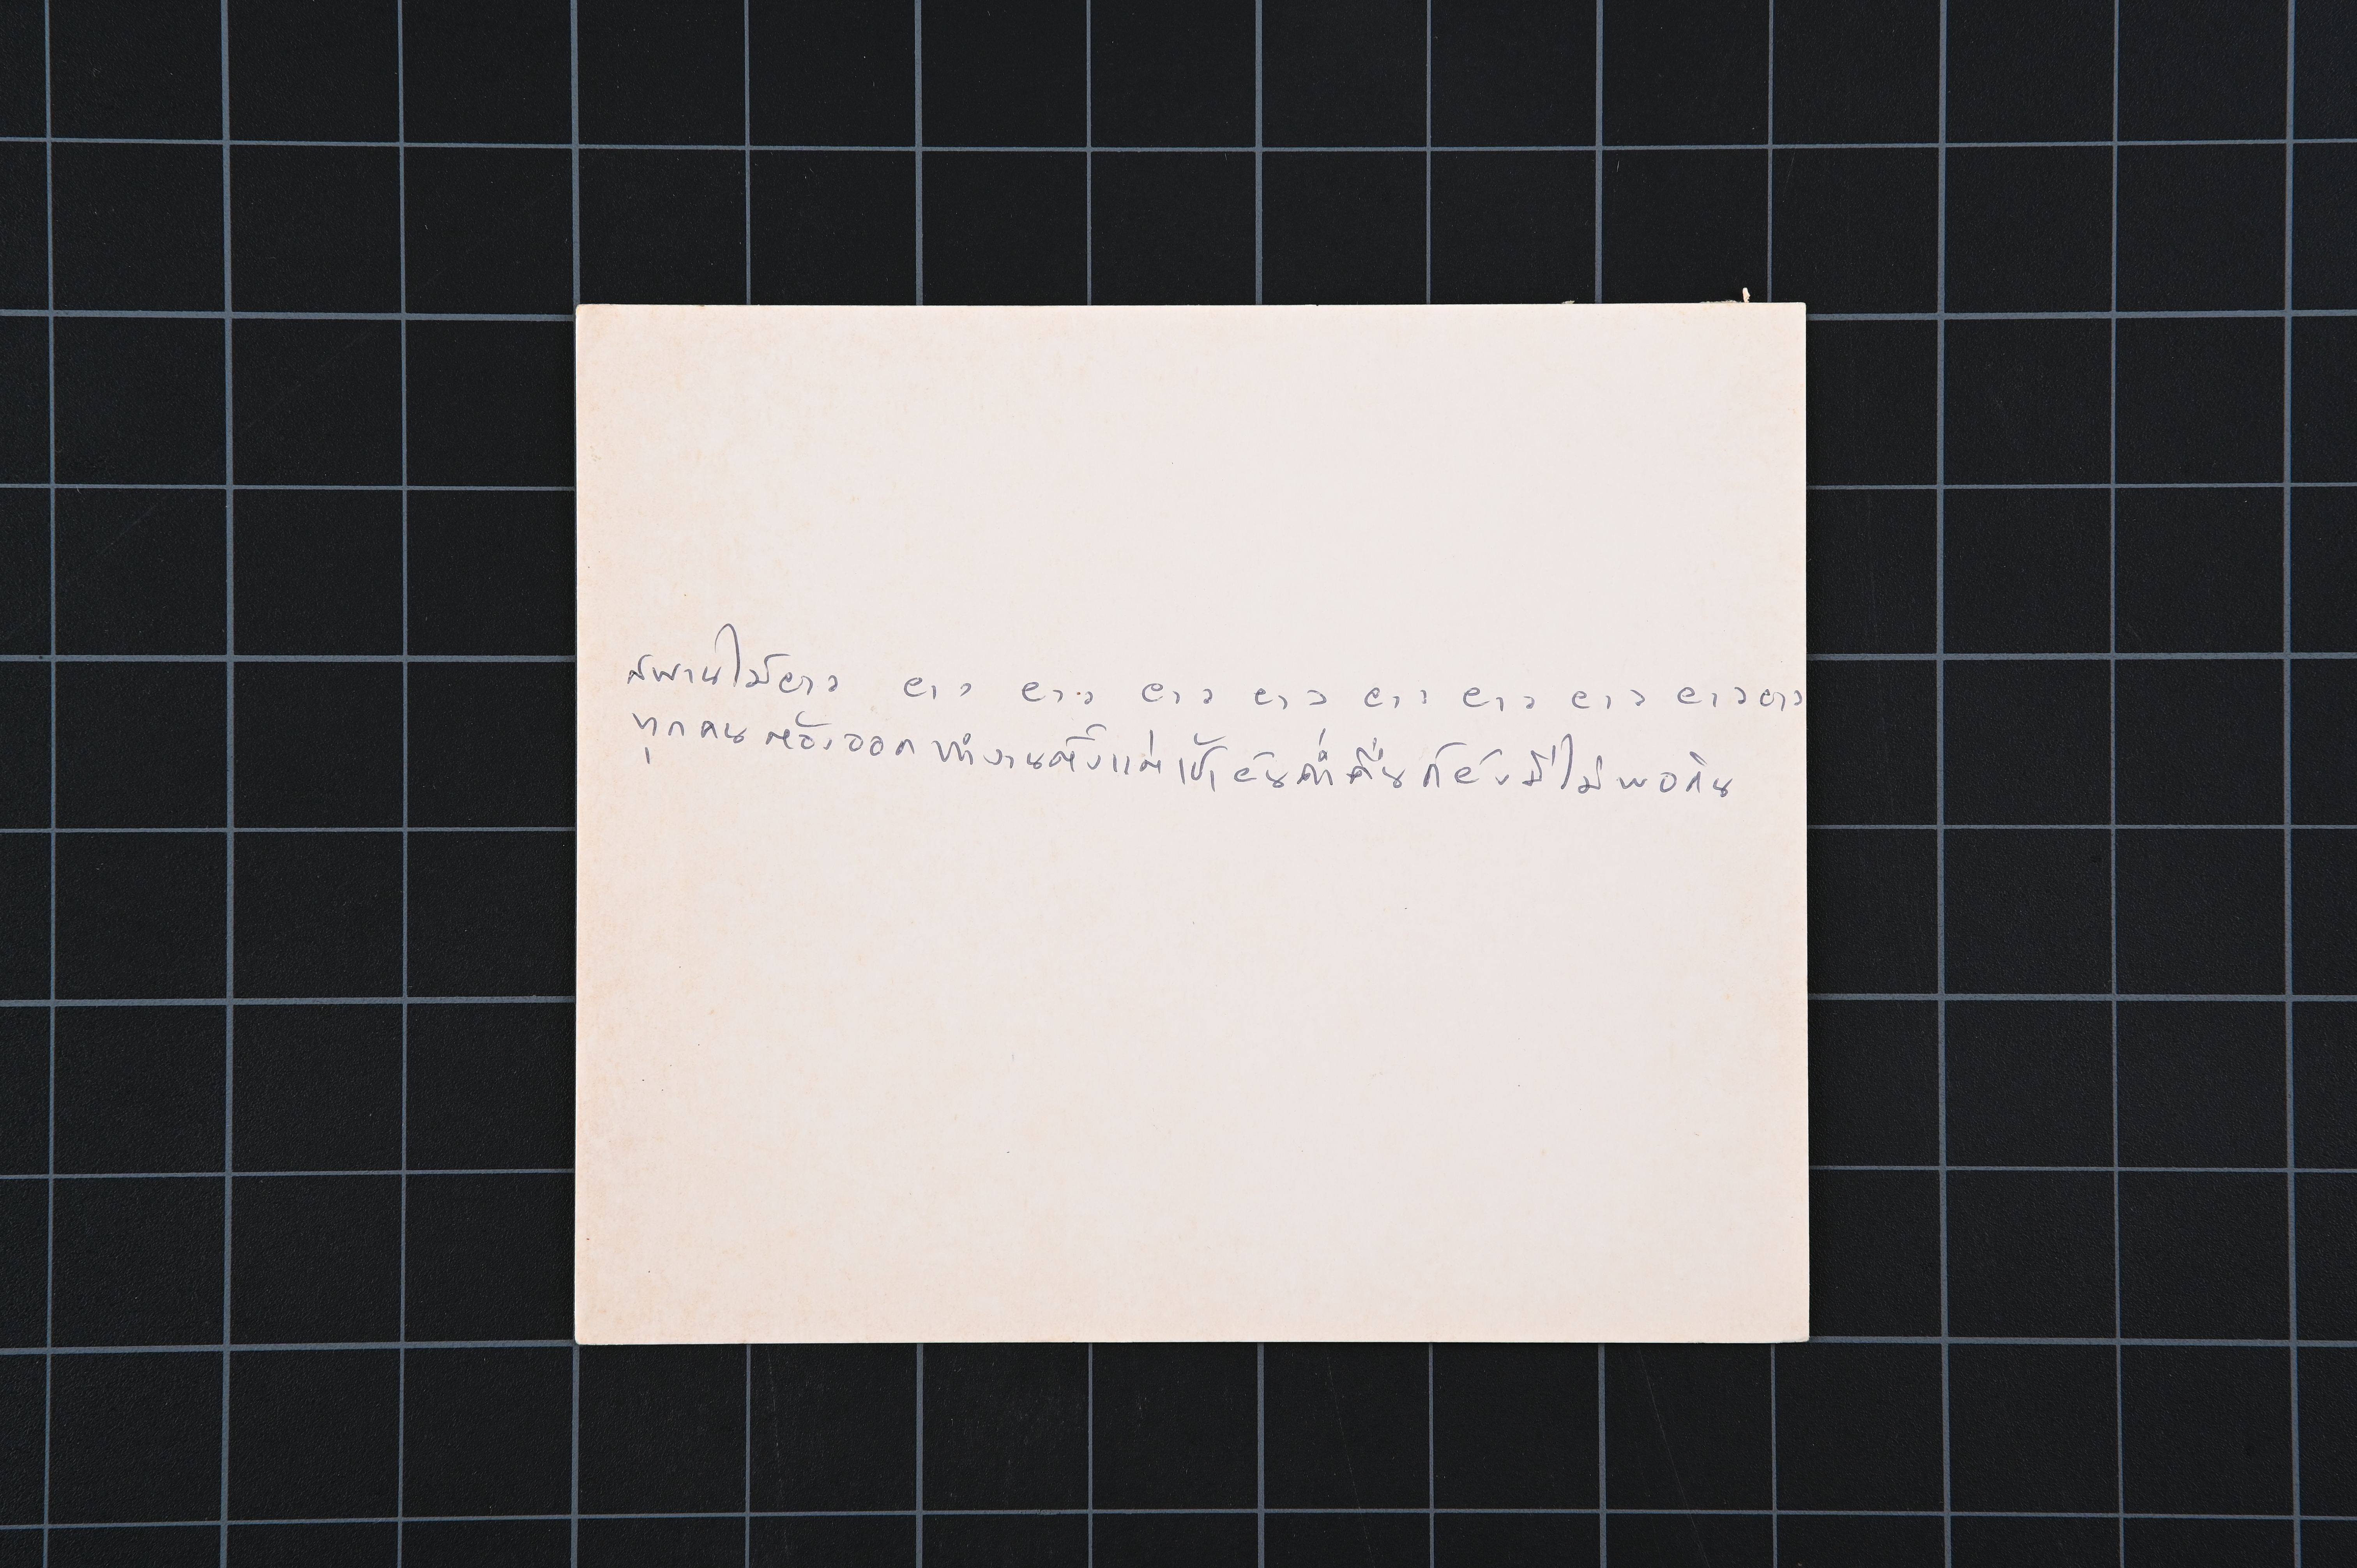 สพานไม้ยาว ยาว ยาว ยาว ยาว ยาว ยาว ยาว ยาวยาว
ทุกคนต้องออกทำงานตั้งแต่เช้ายันค่ำคืนก็ยังมีไม่พอกิน